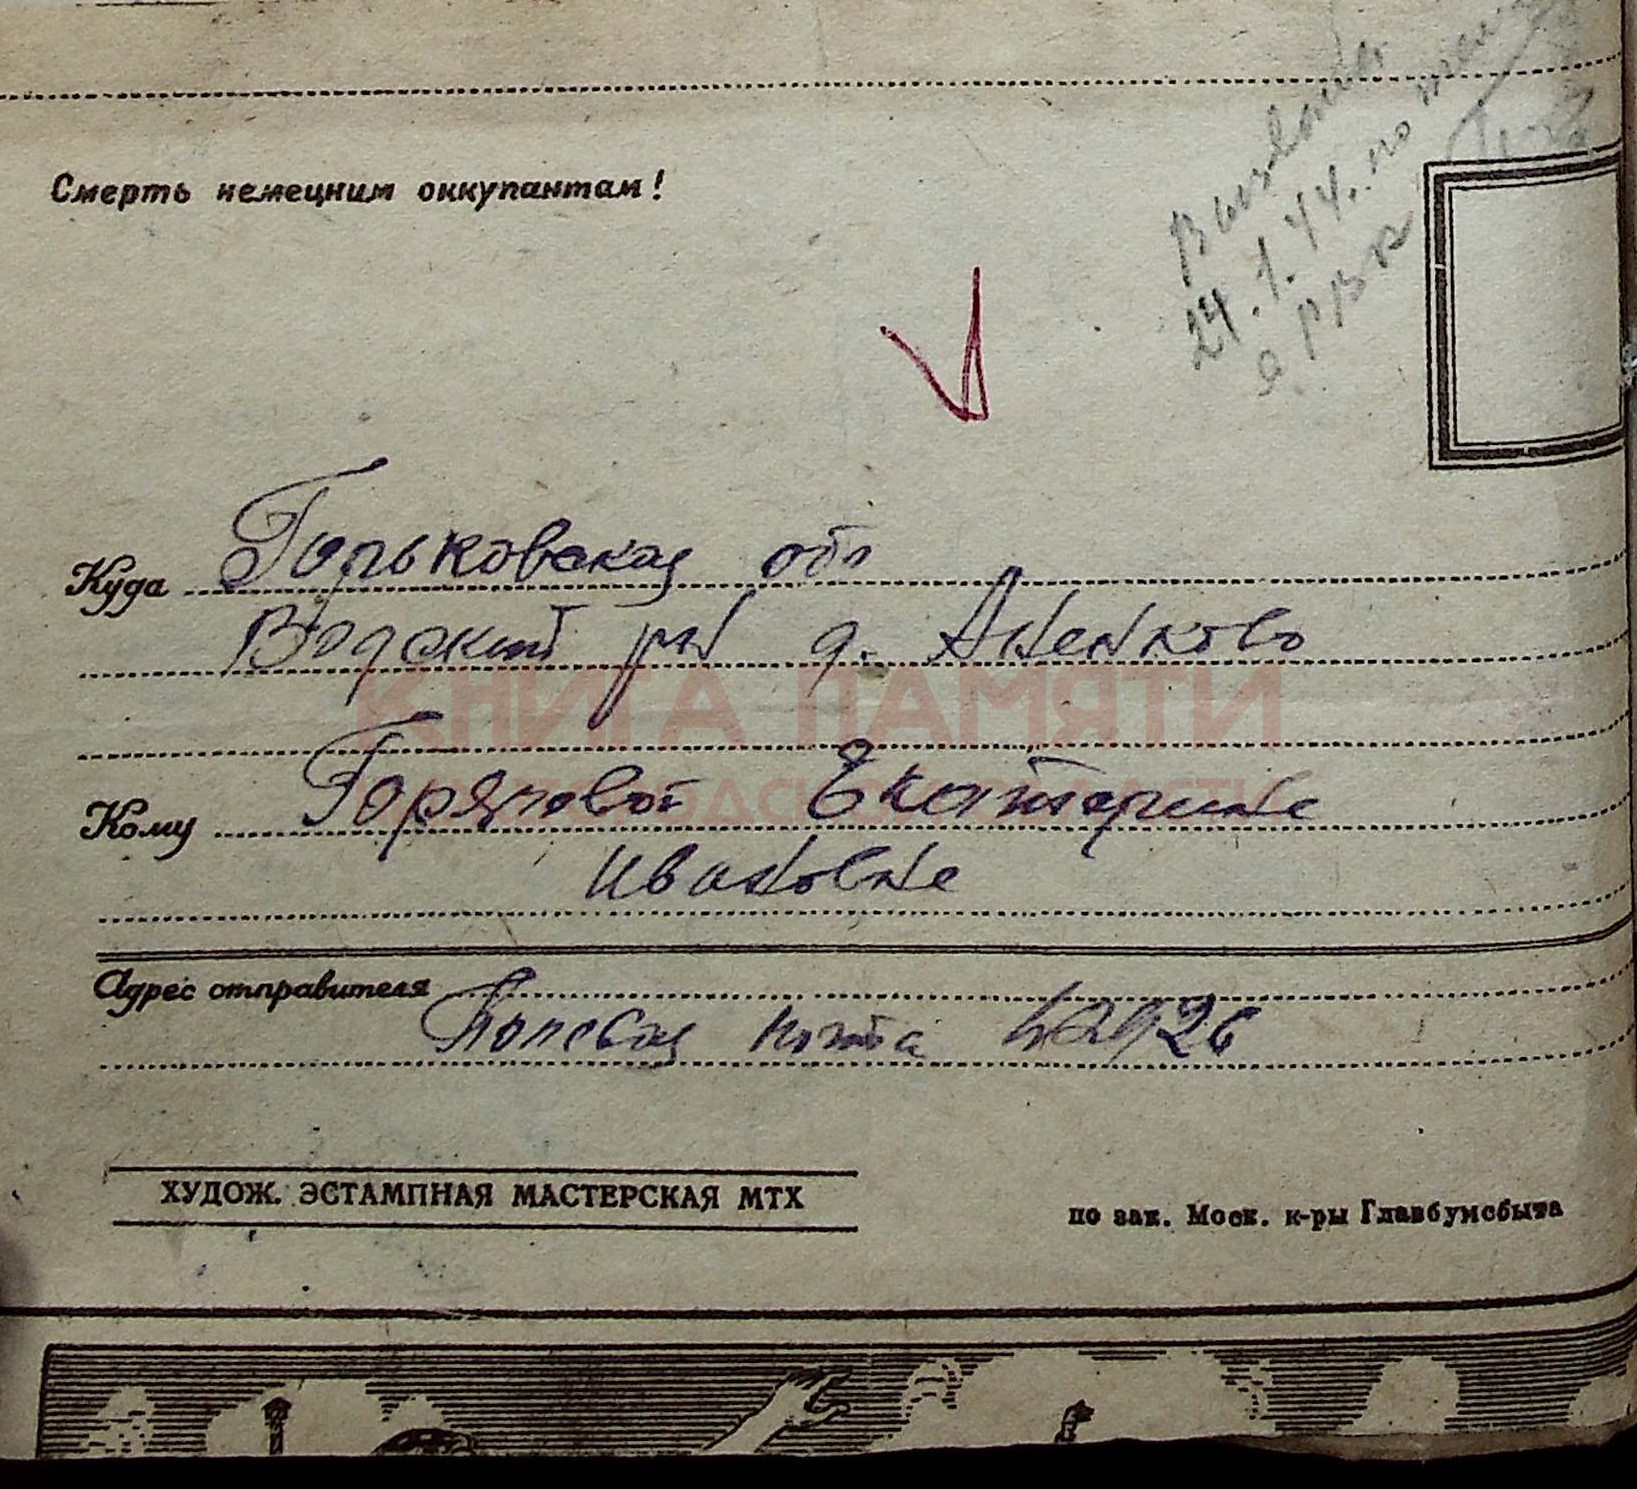 Смерть немецким оккупантам!
Вызвана
24.1.44. по
РВК
Куда Горьковская обл
Вадский рн д. Аненково
КНИГА ПАМЯТИ
Кому Горяповой Екатерине
Ивановне
Адрес отправителя
Полевая почта
ХУДОЖ. ЭСТАМПНАЯ МАСТЕРСКАЯ МТХ
по зак. Моск. к-ры Главбумсбыта